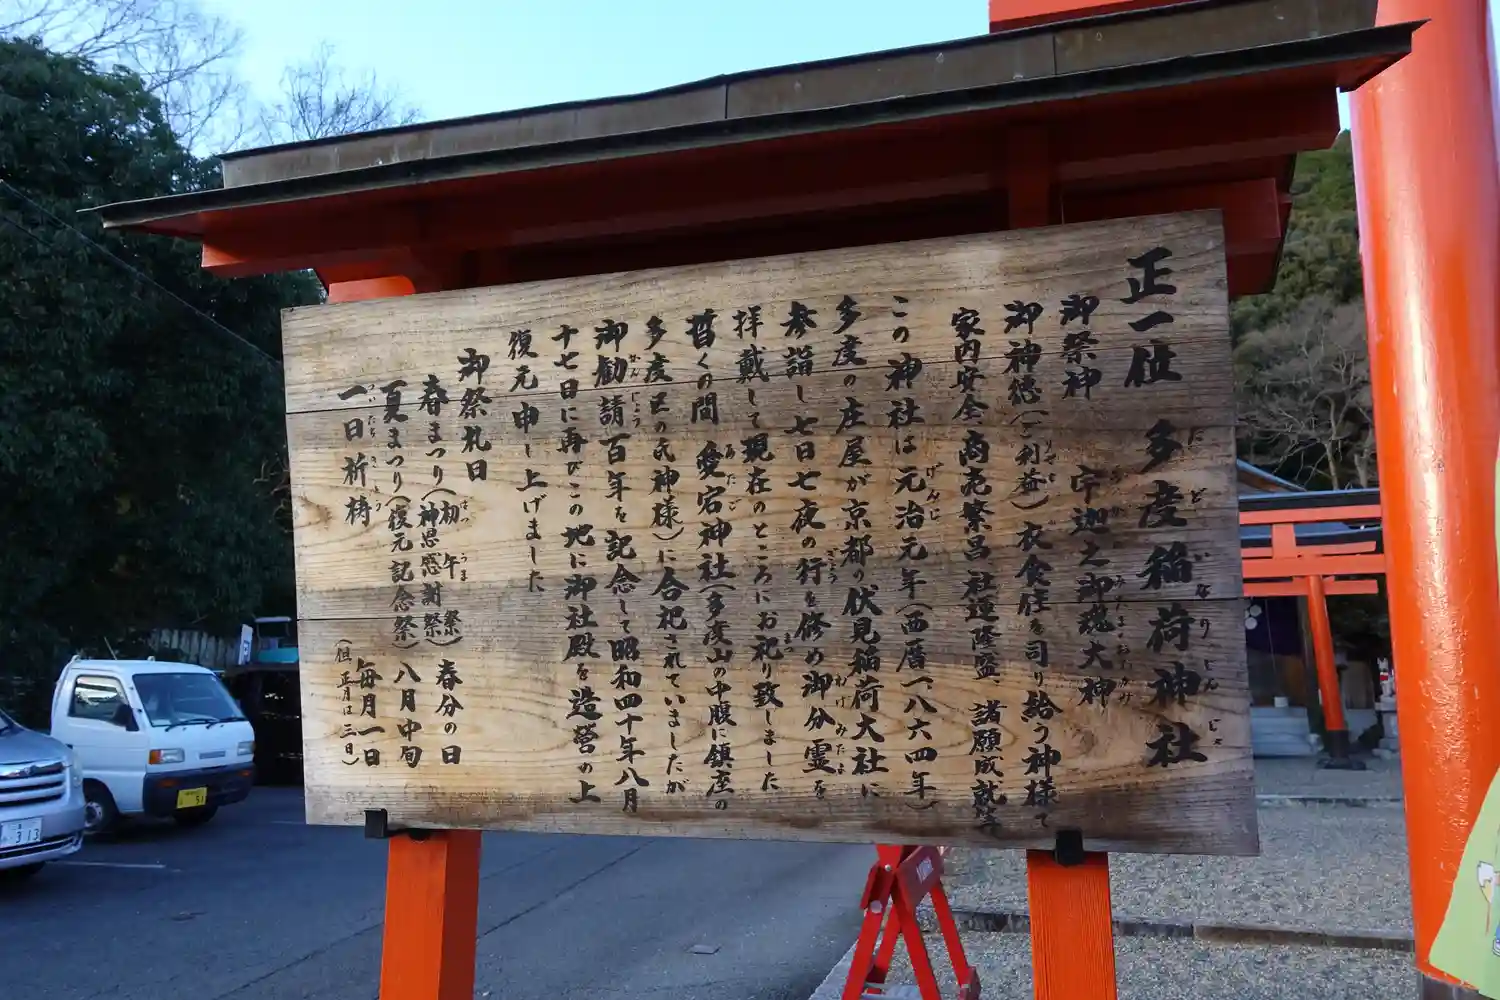 正一位 多度稲荷神社
御祭神 宇迦之御魂大神
御神徳(ご利益) 衣食住を司り給う神様で
家内安全 商売繁昌 社運隆盛 諸願成就等
この神社は元治元年(西暦一八六四年)
多度の庄屋が京都の伏見稲荷大社に
参詣し七日七夜の行を修め御分霊を
拝戴して現在のところにお祀り致しました
暫くの間 愛宕神社(多度山の中腹に鎮座の
多度区の氏神様)に合祀されていましたが
御勧請百年を記念して昭和四十年八月
十七日に再びこの地に御社殿を造営の上
復元申し上げました
御祭礼日
春まつり(初午祭 神恩感謝祭) 春分の日
夏まつり(復元記念祭) 八月中旬
一日祈祷 毎月一日
(但 正月は三日)
313